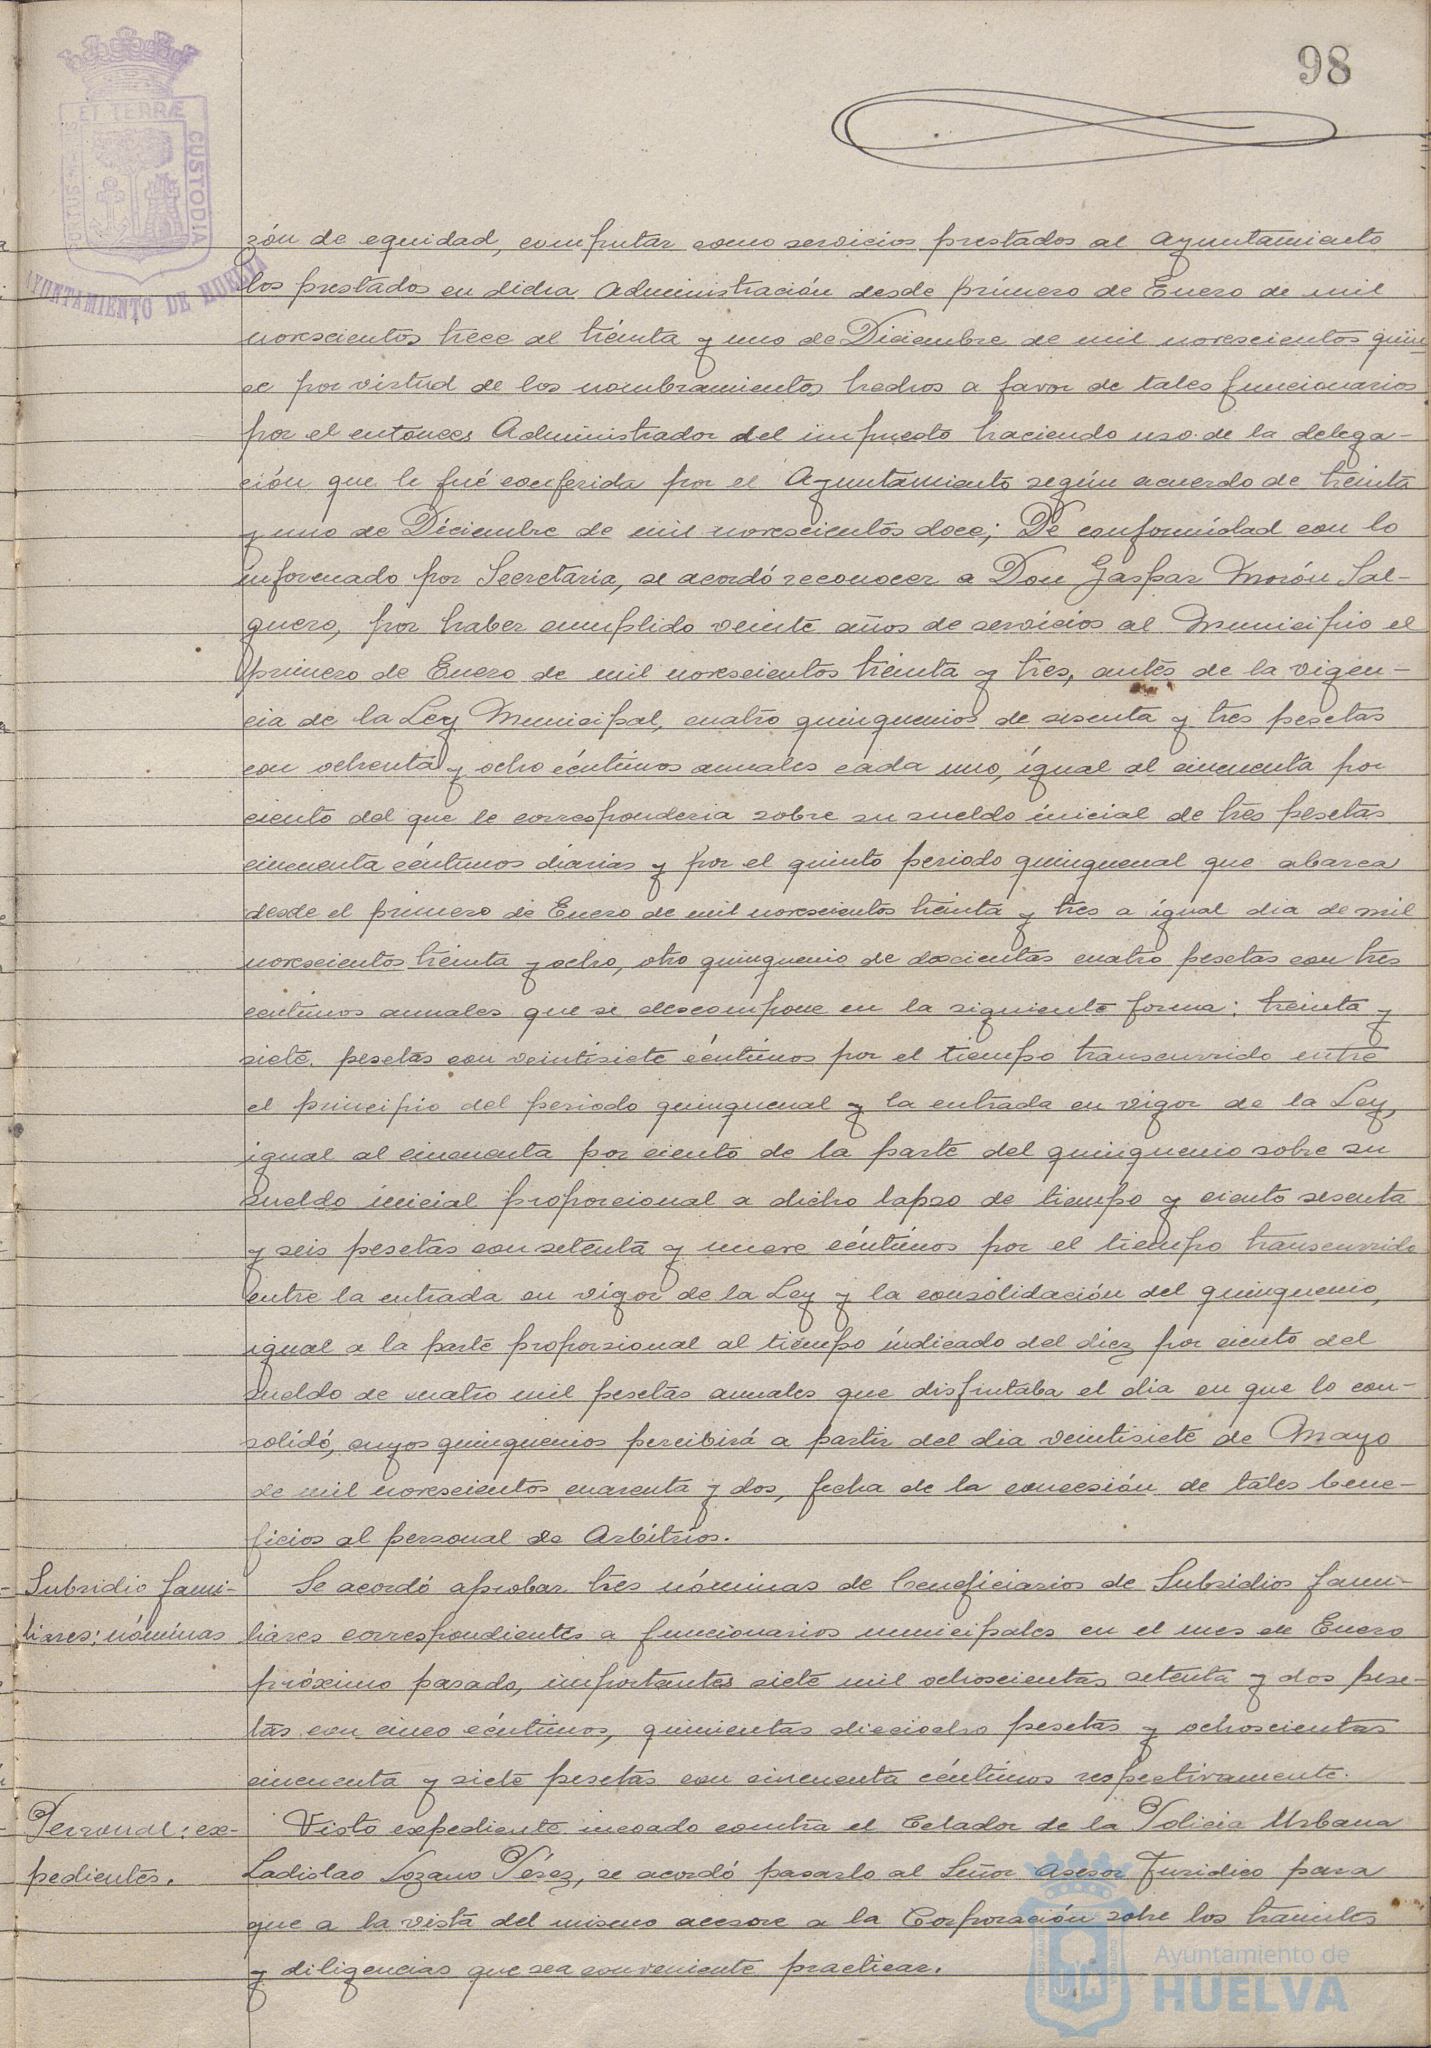 98
PORTUS MARIS
ET TERRÆ
CUSTODIA
AYUNTAMIENTO DE HUELVA
zón de equidad, computar como servicios prestados al Ayuntamiento
los prestados en dicha Administración desde primero de Enero de mil
novescientos trece al treinta y uno de Diciembre de mil novescientos quin-
ce por virtud de los nombramientos hechos a favor de tales funcionarios
por el entonces Administrador del impuesto haciendo uso de la delega-
ción que le fué conferida por el Ayuntamiento según acuerdo de treinta
y uno de Diciembre de mil novescientos doce; De conformidad con lo
informado por Secretaria, se acordó reconocer a Don Gaspar Morón Sal-
guero, por haber cumplido veinte años de servicios al Municipio el
primero de Enero de mil novescientos treinta y tres, antes de la vigen-
cia de la Ley Municipal, cuatro quinquenios de sesenta y tres pesetas
con ochenta y ocho céntimos anuales cada uno, igual al cincuenta por
ciento del que le corresponderia sobre su sueldo inicial de tres pesetas
cincuenta céntimos diarias y por el quinto periodo quinquenal que abarca
desde el primero de Enero de mil novescientos treinta y tres a igual dia de mil
novescientos treinta y ocho, otro quinquenio de doscientas cuatro pesetas con tres
centimos anuales que se descompone en la siguiente forma: treinta y
siete pesetas con veintisiete céntimos por el tiempo transcurrido entre
el principio del periodo quinquenal y la entrada en vigor de la Ley,
igual al cincuenta por ciento de la parte del quinquenio sobre su
sueldo inicial proporcional a dicho lapso de tiempo y ciento sesenta
y seis pesetas con setenta y nueve céntimos por el tiempo transcurrido
entre la entrada en vigor de la Ley y la consolidación del quinquenio,
igual a la parte proporsional al tiempo indicado del diez por ciento del
sueldo de cuatro mil pesetas anuales que disfrutaba el dia en que lo con-
solidó, cuyos quinquenios percibirá a partir del dia veintisiete de Mayo
de mil novescientos cuarenta y dos, fecha de la concesión de tales bene-
ficios al personal de Arbitrios.
Subsidio fami-
liares: nóminas
Se acordó aprobar tres nóminas de beneficiarios de Subsidios fami-
liares correspondientes a funcionarios municipales en el mes de Enero
próximo pasado, importantes siete mil ochoscientas setenta y dos pese-
tas con cinco céntimos, quinientas dieciocho pesetas y ochoscientas
cincuenta y siete pesetas con cincuenta céntimos respectivamente.
Personal: ex-
pedientes.
Visto expediente incoado contra el Celador de la Policia Urbana
Ladislao Lozano Pérez, se acordó pasarlo al Señor Asesor Juridico para
que a la vista del mismo acesore a la Corporación sobre los tramites
y diligencias que sea conveniente practicar.
Ayuntamiento de
HUELVA